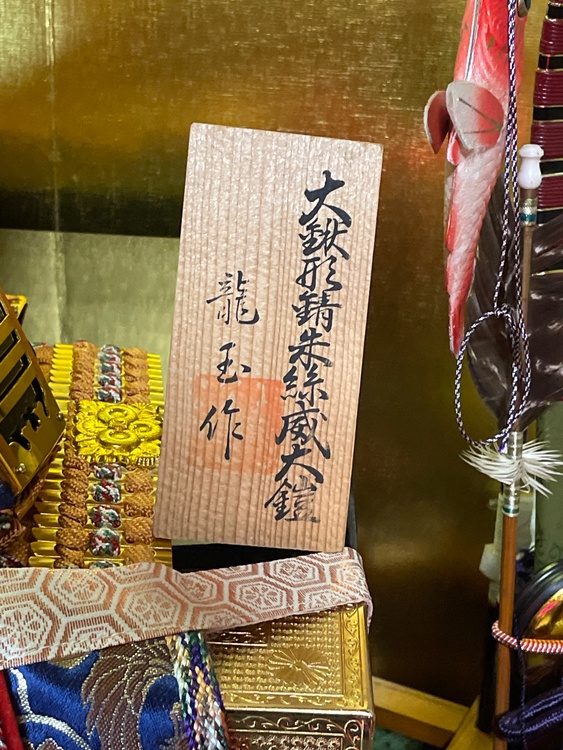 大鍬形錆朱絲威大鎧
龍玉作